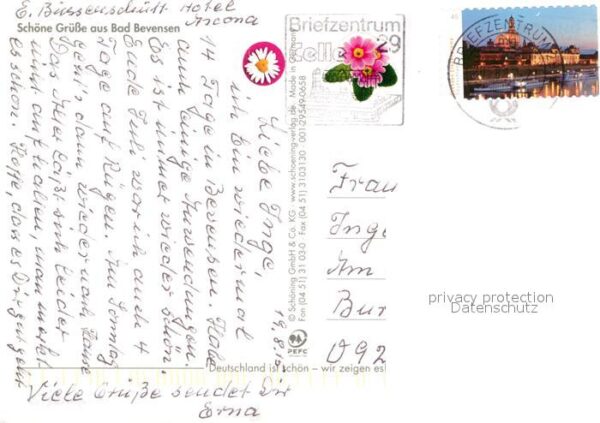 E. Bussenschütt Hotel
Ascona
Schöne Grüße aus Bad Bevensen
19.8.15
Liebe Inge,
ich bin wiedermal
14 Tage in Bevensen. Habe
auch einige Anwendungen.
Es ist immer wieder schön.
Ende Juli war ich auch 4
Tage auf Rügen. Am Sonntag
geht's dann wieder nach Hause
Das Alter läßt sich leider
nicht aufhalten, man merkt
es schon. Hoffe, dass es Dir gut geht
Viele Grüße sendet Dir
Erna
© Schöning GmbH & Co. KG · www.schoening-verlag.de · Made in Germany
Fon (04 51) 31 03-0 Fax (04 51) 3103130
PEFC
Deutschland ist schön – wir zeigen es!
Briefzentrum
Celle 29
BRIEFZENTRUM
Frau
Inge
Am
Bur
092
privacy protection
Datenschutz